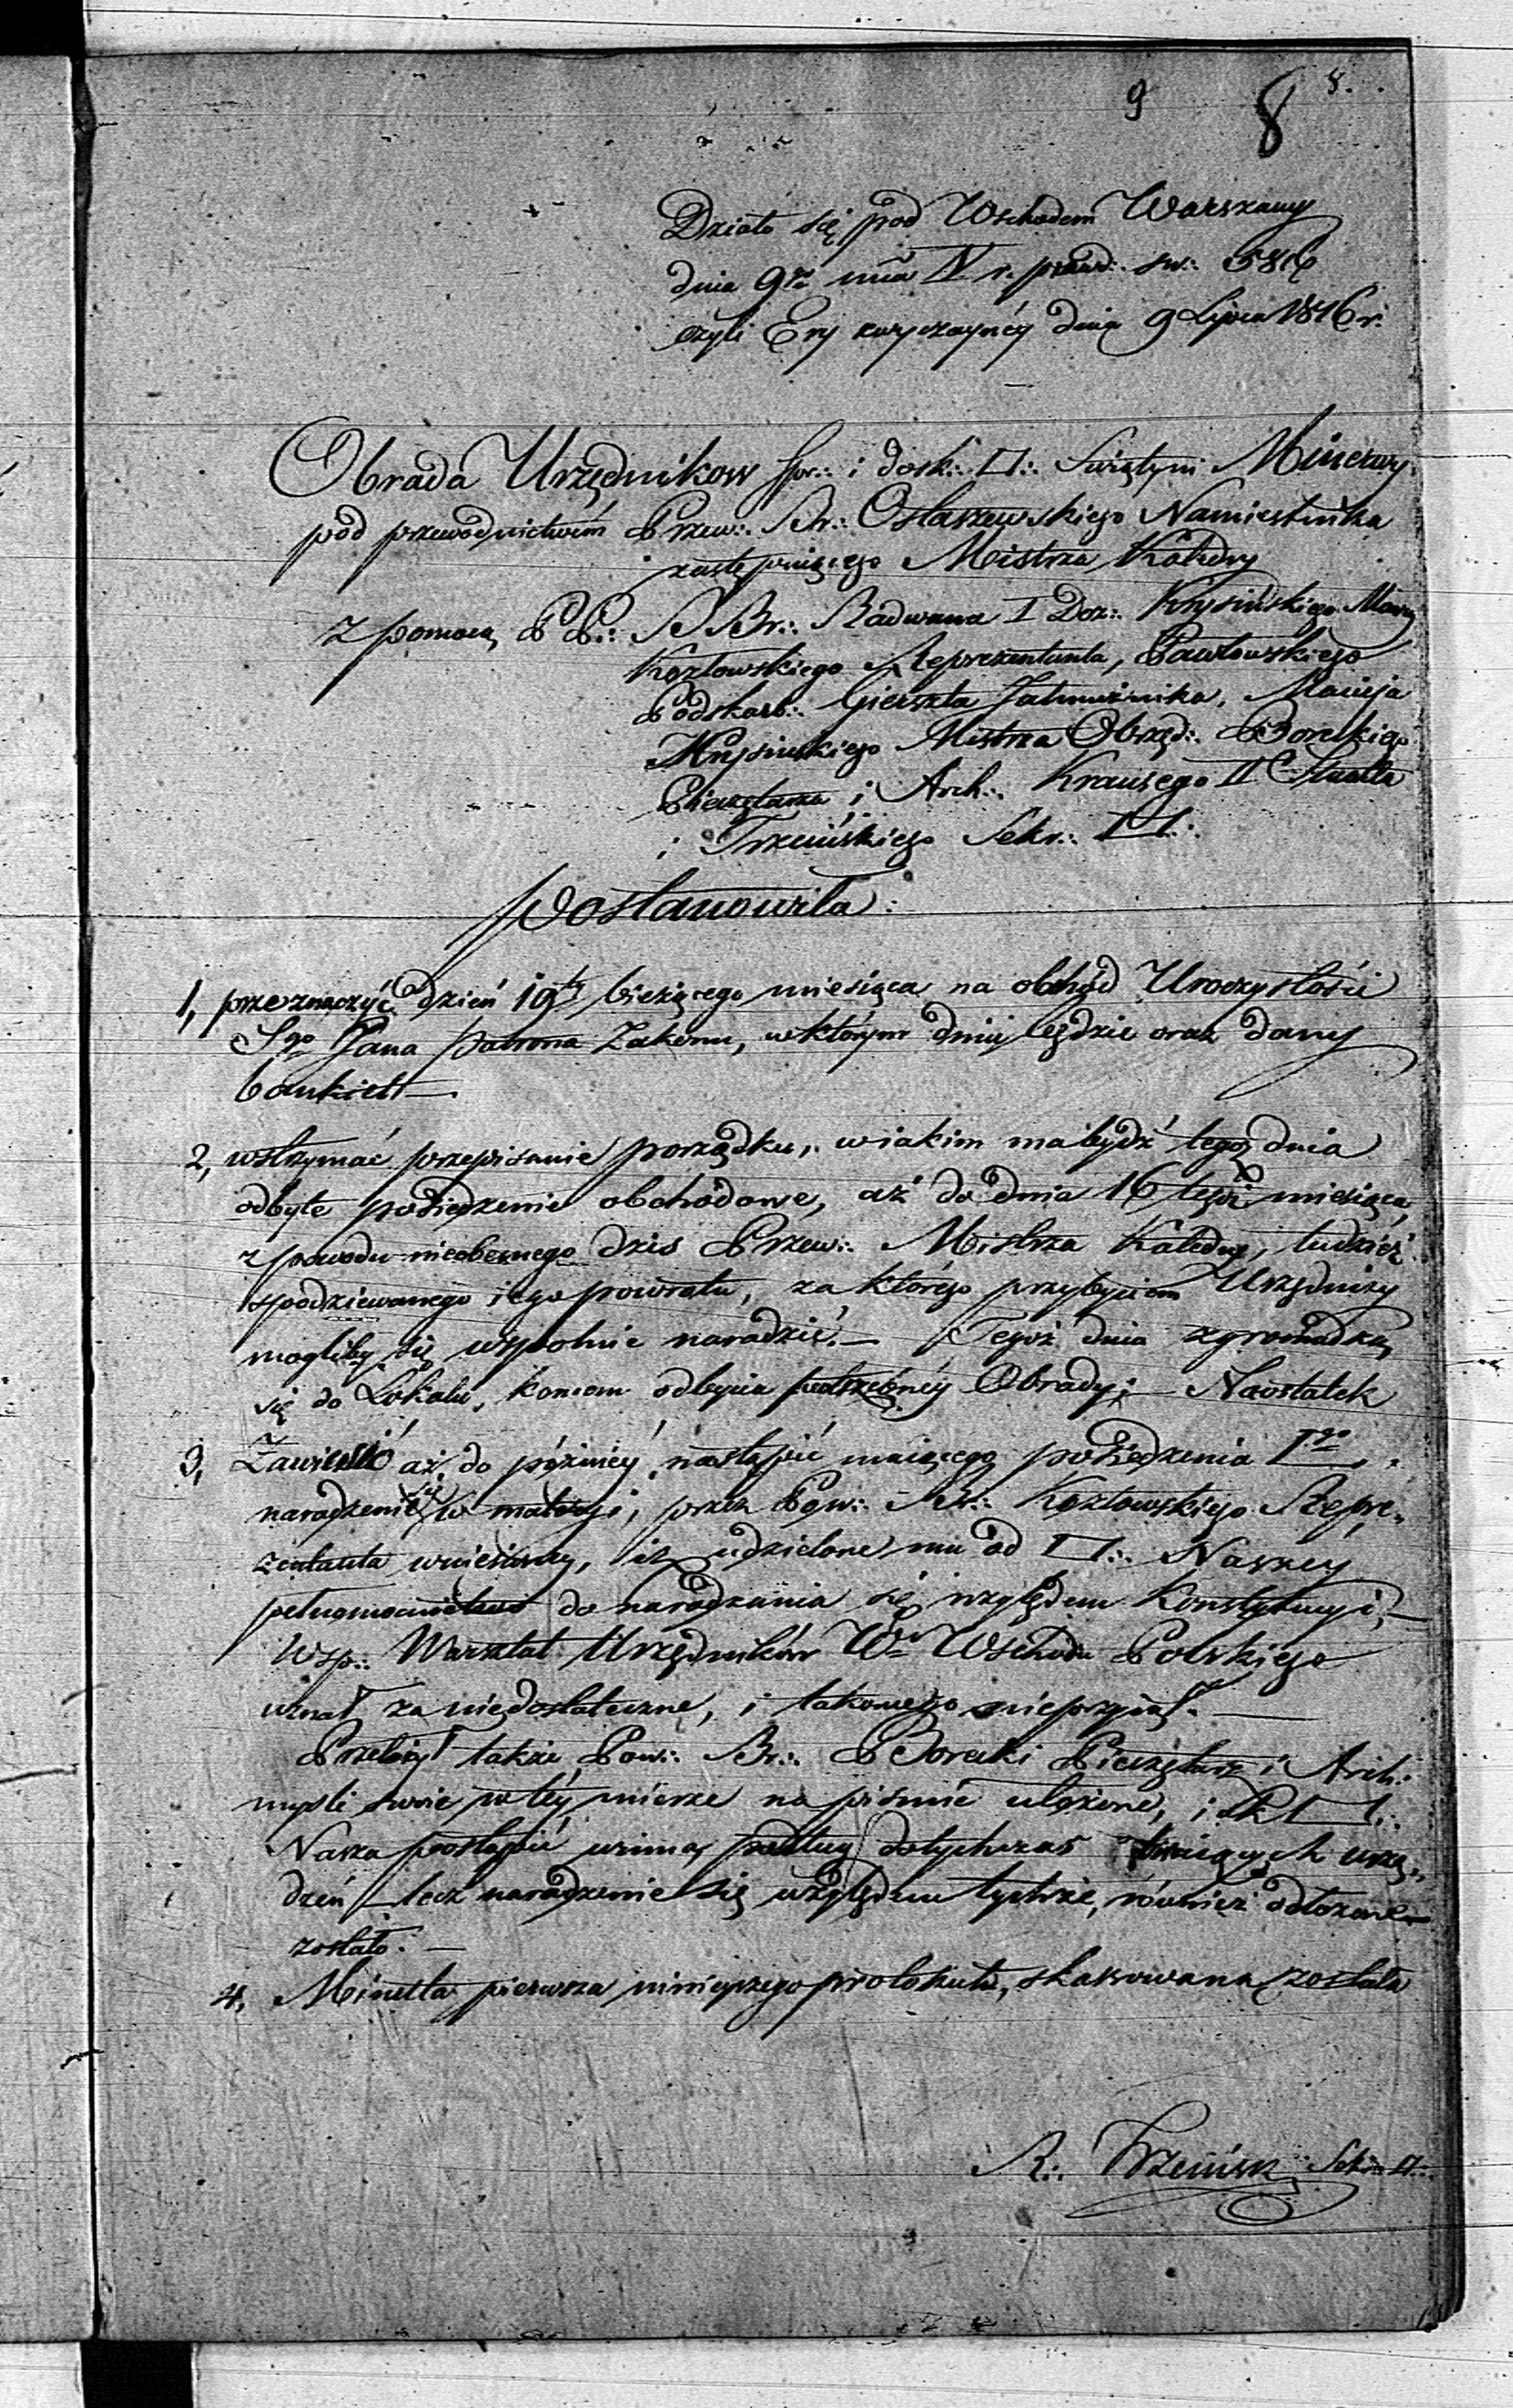 9 8 8.
Działo się pod Wschodem Warszawy
dnia 9go mca IV r. prawd:. św:. 5816
czyli Ery zwyczaynéy dnia 9 Lipca 1816 r.
Obrada Urzędnikow Spr:. i dosk:. □:. Swiątyni Minerwy
pod przewodnictwem Przew:. Br:. Ostaszewskiego Namiestnika
zastępuiącego Mistrza Katedry
z pomocą PP:. BBr:. Radwana I Doz:. Krysińskiego Mówcy
Kozłowskiego Reprezentanta, Pawłowskiego
Podskarb:. Gierszta Jałmużnika, Macieja
Krysinskiego Mistrza Obrząd:. Boreckiego
Pieczętarza i Arch:. Krausego II Stuarta
i Trzcińskiego Sekr:. □:.
postanowiła:
1, przeznaczyć dzień 19ty bieżącego miesiąca na obchód Uroczystości
Sgo Jana Patrona Zakonu, w którym dniu będzie oraz dany
bankiett —.
2, wstrzymać przepisanie porządku, w iakim ma bydź tegoż dnia
odbyte posiedzenie obchodowe, aż do dnia 16 tegoż miesiąca,
z powodu nieobecnego dzis Przew:. Mistrza Katedry, tudzież
spodziewanego iego powrotu, za którego przybyciem Urzędnicy
mogliby się wspolnie naradzić. — Tegoż dnia zgromadzą
się do Lokalu, koncem odbycia potrzebnéy Obrady; — Naostatek
3, Zawiesić aż do późniéy nastąpić maiącego posiedzenia Igo
naradzenie się w materyi, przez Pow:. Br:. Kozłowskiego Repre„
zentanta wniesioney, iż udzielone mu od □:. Naszey
pełnomocnictwo do naradzania się względem Konstytucyi, —
Wsp:. Warsztat Urzędników Wo Wschodu Polskiego
uznał za niedostateczne, i takowego nieprzyiął. —
Przełożył także Pow:. Br:. Borecki Pieczętarz i Arch:.
myśli swoie w téy mierze na piśmie ułożone, i □:.
Nasza postąpić winna podług dotychczas urzą„
dzeń — lecz naradzenie się względem tychże, również odłożone
zostało. —
4, Minutta pierwsza ninieyszego protokułu, skassowana została
R:. Trzcińsk Sekr:. □:.